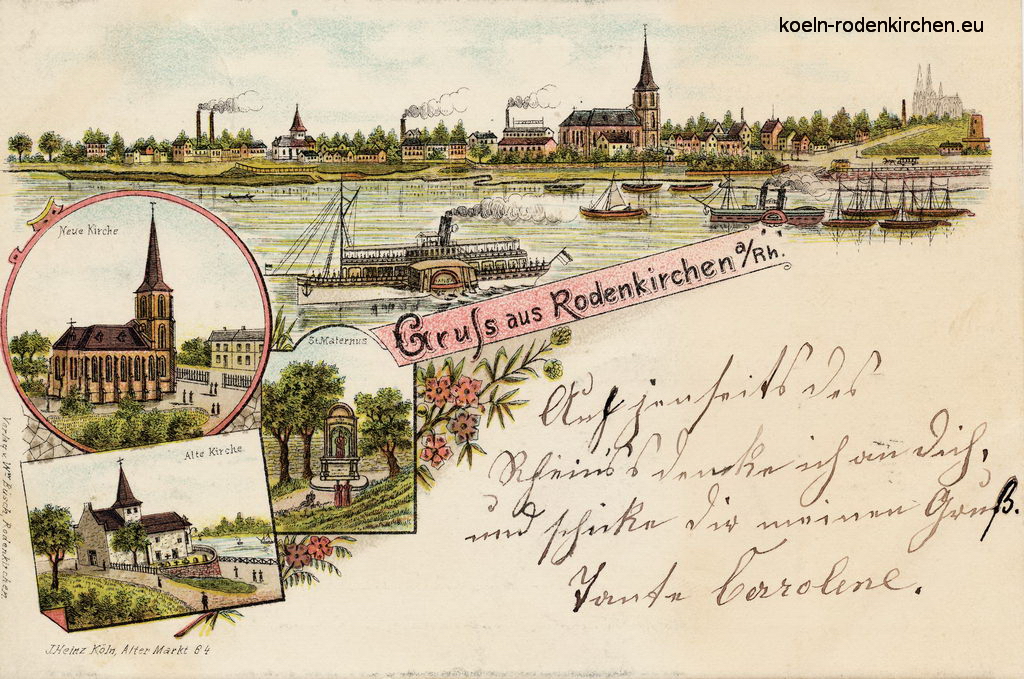 koeln-rodenkirchen.eu
Neue Kirche
Gruss aus Rodenkirchen a/Rh.
St. Maternus
Alte Kirche
Auf jenseits des
Rhein's denke ich an Dich,
und schicke Dir meinen Gruß.
Tante Caroline.
Verlag v. Wm Busch, Rodenkirchen.
J. Heinz Köln, Alter Markt 64